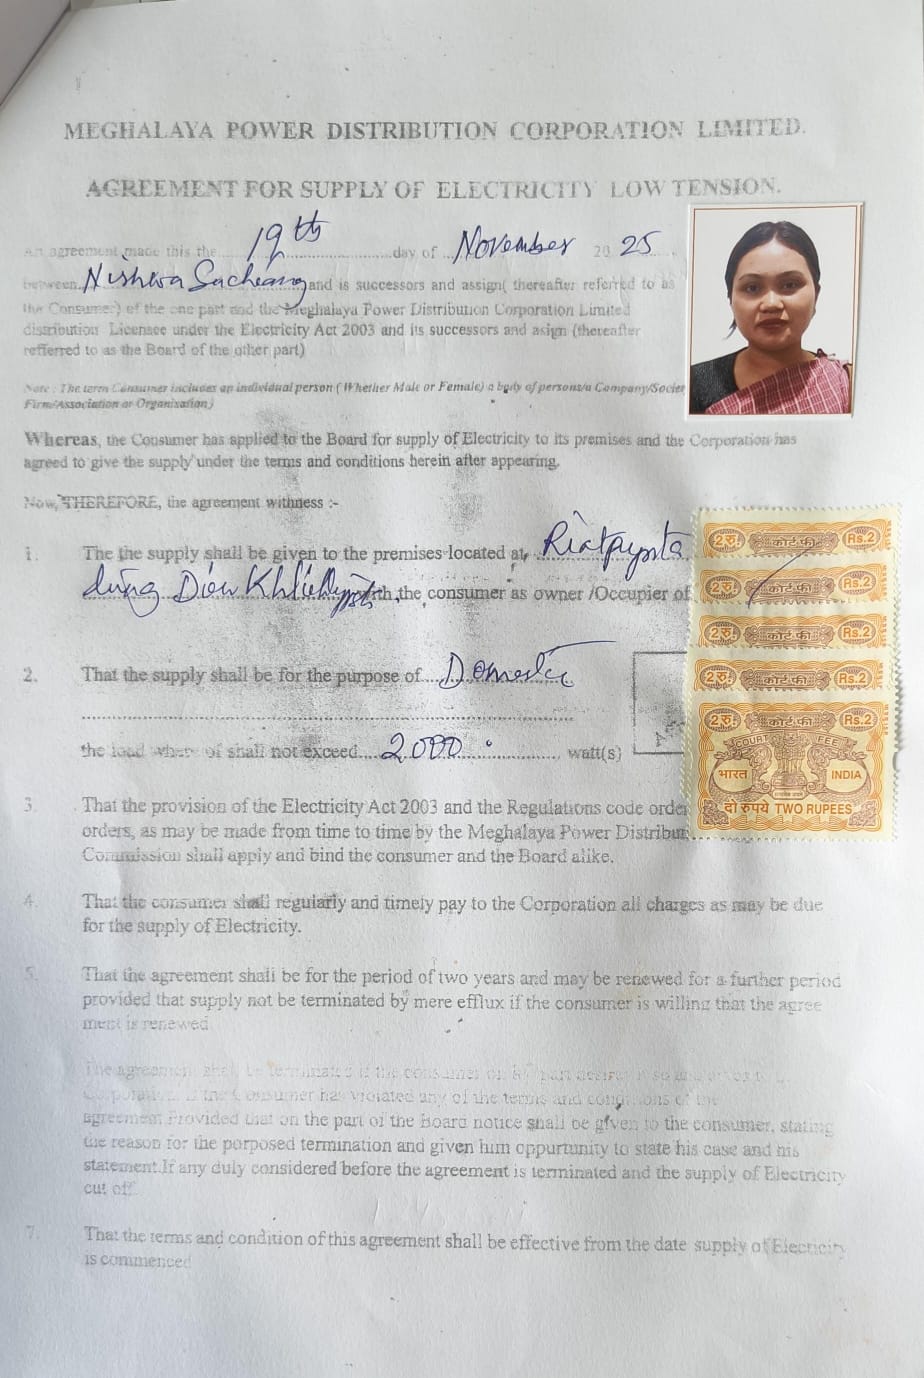 MEGHALAYA POWER DISTRIBUTION CORPORATION LIMITED.
AGREEMENT FOR SUPPLY OF ELECTRICITY LOW TENSION.
An agreement made this the 19th day of November 2025.
between Nishwa Sucheang and is successors and assign( thereafter referred to as
the Consumer) of the one part and the Meghalaya Power Distribution Corporation Limited
distribution Licensee under the Electricity Act 2003 and its successors and asign (thereafter
refferred to as the Board of the other part)
Note : The term Consumer includes an individual person ( Whether Male or Female) a body of persons/a Company/Societ
Firm/Association or Organisation)
Whereas, the Consumer has applied to the Board for supply of Electricity to its premises and the Corporation has
agreed to give the supply under the terms and conditions herein after appearing.
Now, THEREFORE, the agreement witness :-
1. The the supply shall be given to the premises located at,
Dien the consumer as owner /Occupier of
2. That the supply shall be for the purpose of Domestic
the load where of shall not exceed 2000 watt(s)
3. That the provision of the Electricity Act 2003 and the Regulations code orde
orders, as may be made from time to time by the Meghalaya Power Distribu
Commission shall apply and bind the consumer and the Board alike.
4. That the consumer shall regularly and timely pay to the Corporation all charges as may be due
for the supply of Electricity.
5. That the agreement shall be for the period of two years and may be renewed for a further period
provided that supply not be terminated by mere efflux if the consumer is willing that the agree
ment is renewed
The agreement shall be terminated if the consumer on
Corporation, if the Consumer has violated any of the terms and conditions of the
agreement Provided that on the part of the Board notice shall be given to the consumer, stating
the reason for the porposed termination and given him oppurtunity to state his case and his
statement.If any duly considered before the agreement is terminated and the supply of Electricity
cut off
7. That the terms and condition of this agreement shall be effective from the date supply of Electricity
is commenced
2रु. कोर्ट फी Rs.2
2रु. कोर्ट फी Rs.2
2रु. कोर्ट फी Rs.2
2रु. कोर्ट फी Rs.2
2रु. कोर्ट फी Rs.2
COURT FEE
भारत INDIA
दो रुपये TWO RUPEES